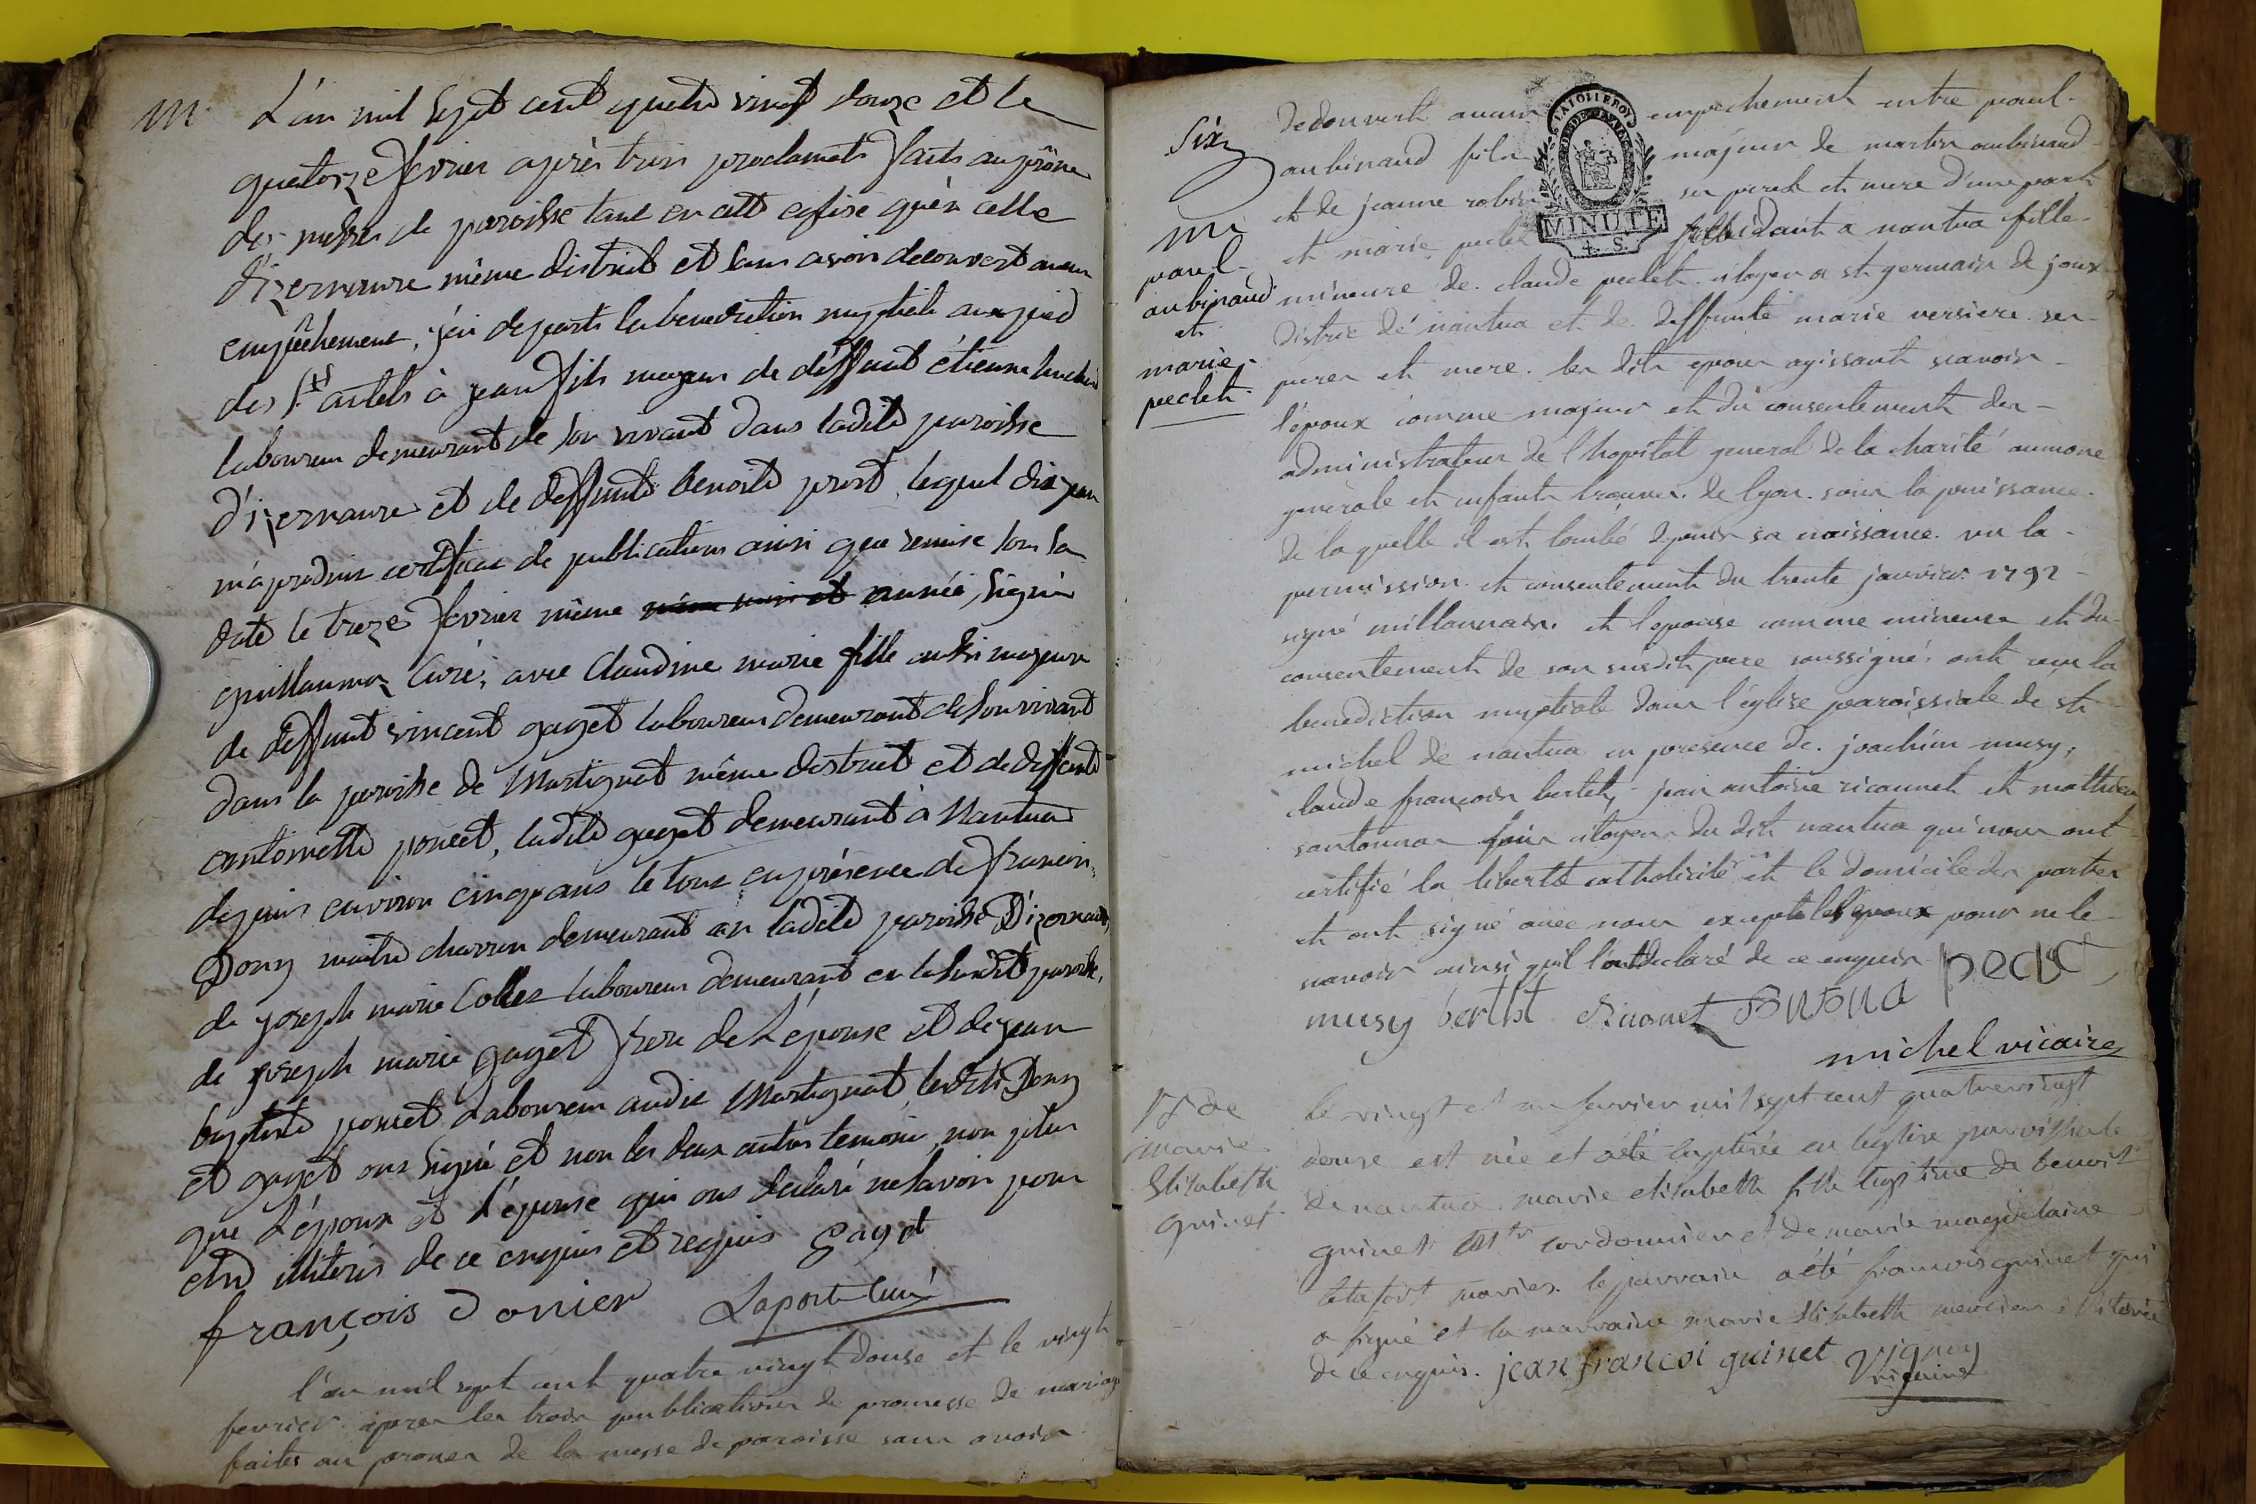 m
L'an mil sept cent quatre vingt douze et le
quatorze fevrier après trois proclamats faits au prône
des messes de paroisse tant en cette eglise qu'en celle
d'izernaure même district et sans avoir decouvert aucun
empêchement, j'ai departi la bénédiction nuptiale au pied
des sts autels à jean fils majeur de déffunt étienne
laboureur demeurant de son vivant dans ladite paroisse
d'izernaure et de deffunte benoite prost, lequel dit jean
m'a produit certificat de publications ainsi que remise sous la
date le treize fevrier même année, signé
guillaumoz curé, avec Claudine marie fille aussi majeure
de deffunt vincent gaget laboureur demeurant de son vivant
dans la paroisse de Martignat même district et de deffunte
antoinette poncet, ladite gaget demeurant à Nantua
depuis environ cinq ans le tout en présence de francois
Dony maitre charron demeurant en ladite paroisse D'izernaure,
de joseph marie Collez laboureur demeurant en la susdite paroisse,
de joseph marie gaget frere de L'épouse et de jean
baptiste poncet Laboureur audit Martignat, lesdits Dony
et gaget ont signé et non les deux autres temoins, non plus
que L'époux et L'épouse qui ont declaré ne savoir pour
etre illiterés de ce enquis et requis gaget
françois donier Laporte curé
l'an mil sept cent quatre vingt douse et le vingt
fevrier apres les trois publications de promesse de mariage
faites au prones de la messe de paroisse sans avoir
Six
decouvert aucun empechement entre paul
aubinaud fils majeur de martin aubinaud
et de jeanne robin ses pere et mere d'une part
et marie peclet residant a nantua fille
mineure de claude peclet citoyen a st germain de joux
district de nantua et de deffunte marie versiere ses
peres et mere. les dits epoux agissants scavoir
l'époux comme majeur et du consentement des
administrateurs de l'hopital general de la charité aumone
generale et enfants trouvés de lyon sous la puissance
de laquelle il est tombé depuis sa naissance vu la
permission et consentement du trente janvier 1792
signé millannais et l'epouse comme mineure et du
consentement de son susdit pere soussigné ont reçu la
benediction nuptiale dans l'église paroissiale de st
michel de nantua en presence de joachim musy,
claude françois bertet, jean antoine ricannet et mathieu
santonnas tous citoyens du dit nantua qui nous ont
certifié la liberté catholicité et le domicile des parties
et ont signé avec nous excepté les epoux pour ne le
scavoir ainsi qu'il l'ont declaré de ce enquis pecle
musy bertet
michel vicaire
m
paul
aubinaud
et
marie
peclet
LA LOI LE ROI
MINUTE
4. S.
le vingt et un fevrier mil sept cent quatrevingt
douse est née et a été baptisée en l'eglise paroissiale
de nantua marie elisabeth fille legitime de benoit
guinet mtr cordonnier et de marie magdelaine
mariés. le parrain a été francois guinet qui
a signé et la marraine marie Elisabeth mercier illiterée
de ce enquis. jean francoi guinet Vigney
vicaire
marie
Elisabeth
guinet